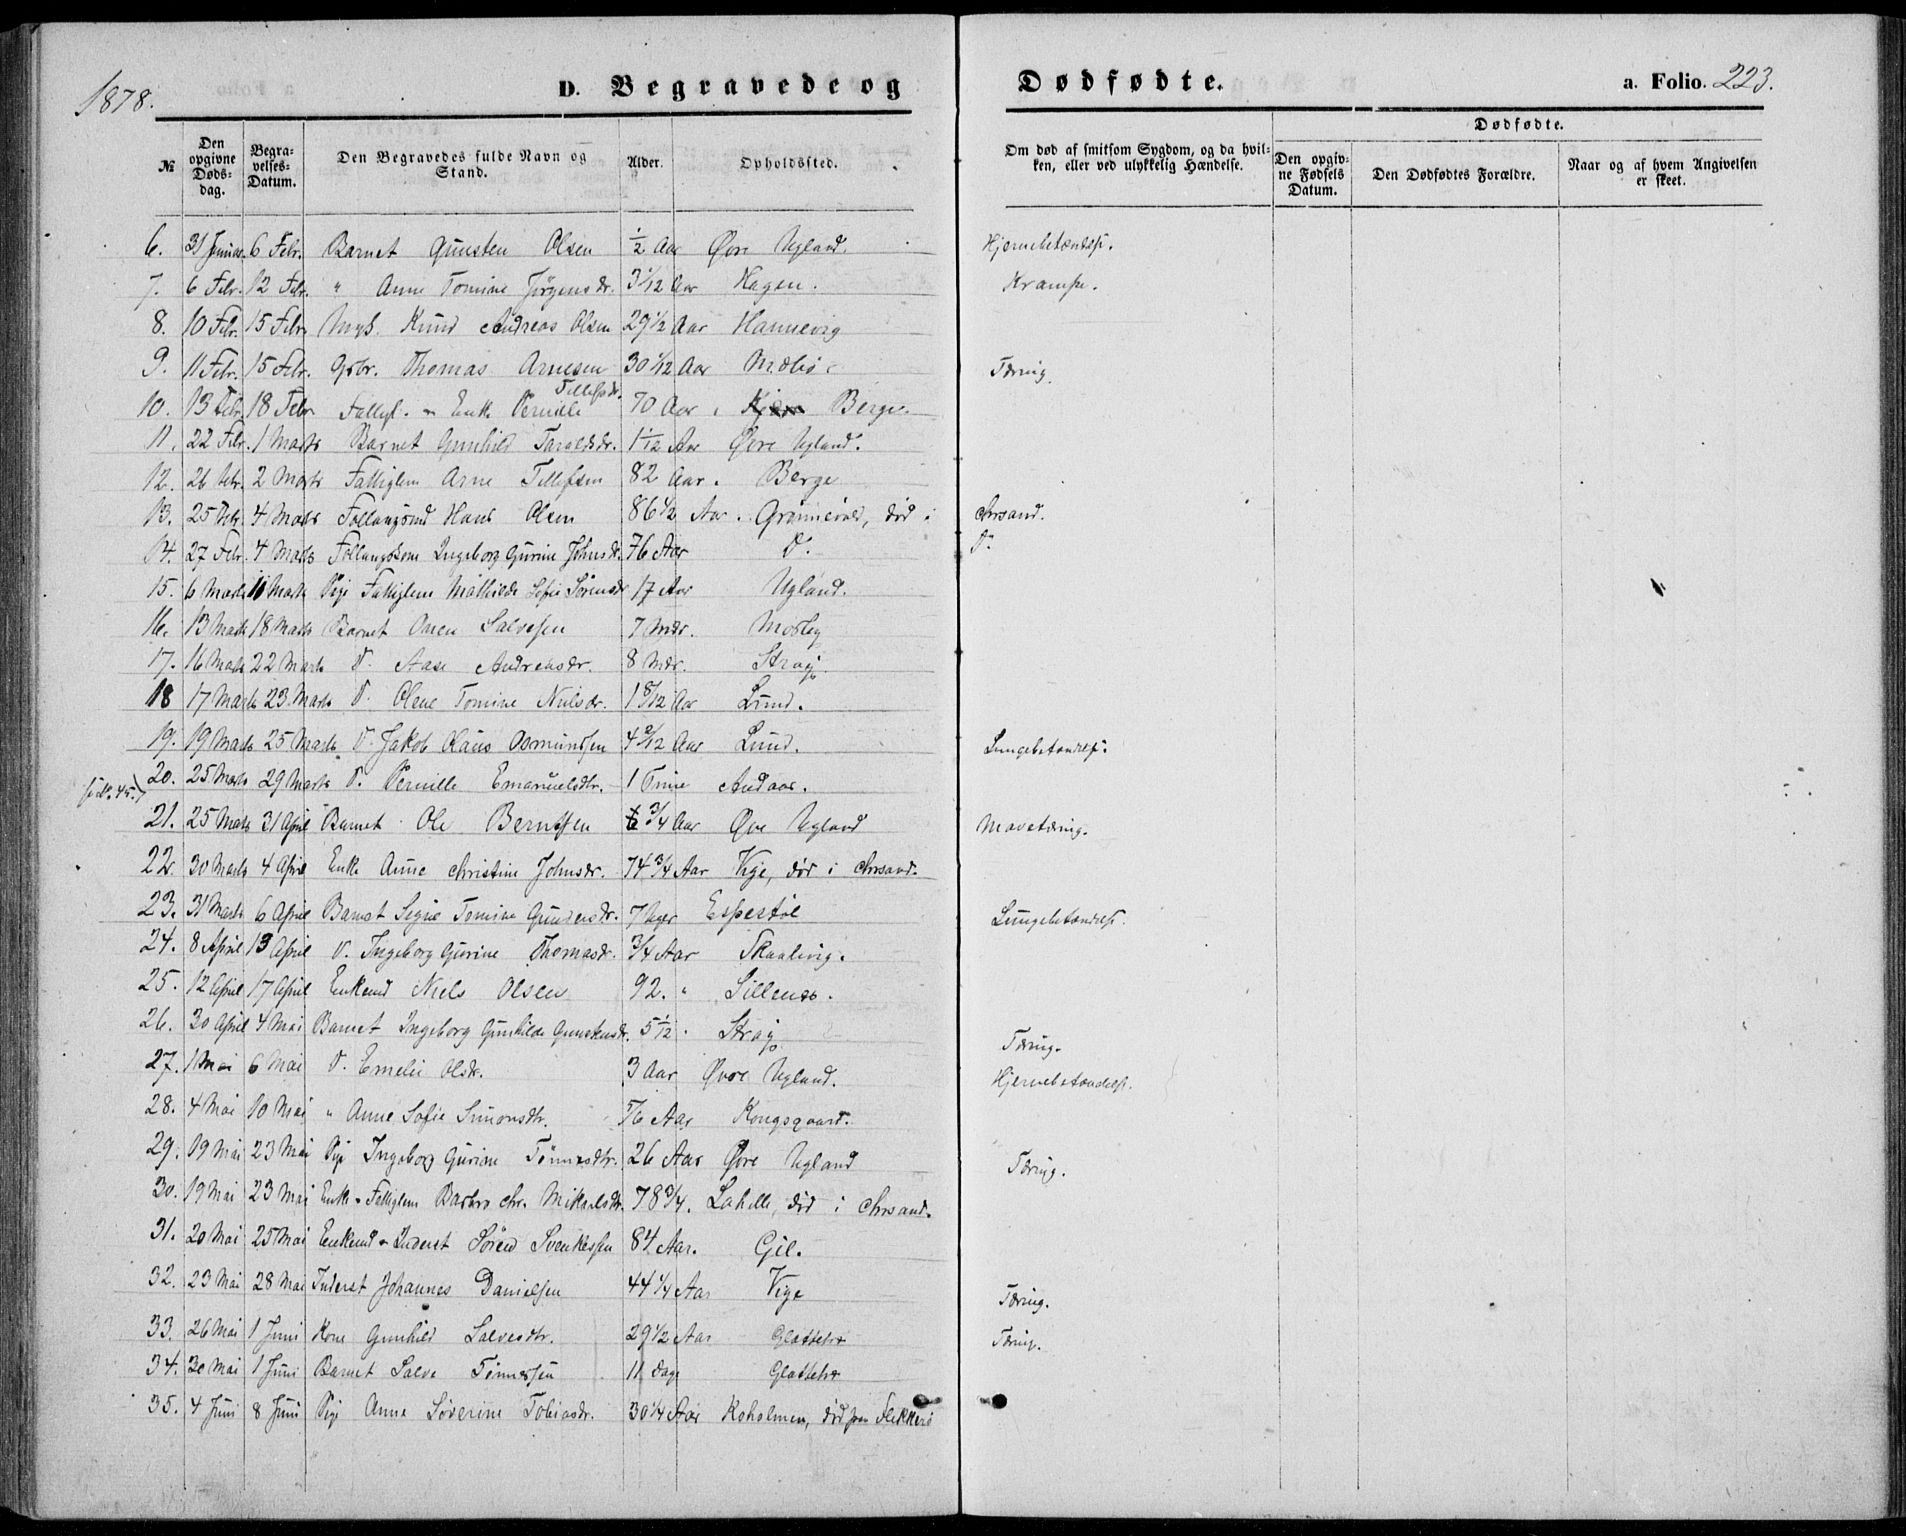 1878.
D. Begravede og Dødfødte. a. Folio. 223.
№ Den opgivne Døds-dag. Begra-velses-Datum. Den Begravedes fulde Navn og Stand. Alder. Opholdssted. Om død af smitsom Sygdom, og da hvil-ken, eller ved ulykkelig Hændelse. Dødfødte. Den opgiv-ne Fødsels Datum. Den Dødfødtes Forældre. Naar og af hvem Angivelsen er skeet.
6. 31 Januar 6 Febr. Barnet Gunsten Olsen 1/2 Aar Øvre Ugland. Hjernebetændelse.
7. 6 Febr. 12 Febr. " Anne Tomine Jörgensdr. 3 1/12 Aar Hagen. Krampe.
8. 10 Febr. 15 Febr. Knud Andreas Olsen 29 1/2 Aar Hannevig
9. 11 Febr. 15 Febr. Gbr. Thomas Arnesen 30 1/12 Aar Mæbø Tæring.
10. 13 Febr. 18 Febr. Enke Pernille Tellefsdr. 70 Aar Berge.
11. 22 Febr. 1 Marts Barnet Gunhild Taraldsdr. 1 1/12 Aar Øvre Ugland.
12. 26 Febr. 2 Marts Fattiglem Arne Tellefsen 82 Aar. Berge
13. 25 Febr. 4 Marts Hans Olsen 86 1/2 Aar. Grønnevold, død i Chrsand.
14. 27 Febr. 4 Marts Ingeborg Gurine Johnsdr. 76 Aar D. D.
15. 6 Marts 11 Marts Pige Fattiglem Mathilde Sofie Sörensdr 17 Aar Ugland.
16. 13 Marts 18 Marts Barnet Omen Salvesen 7 Mdr. Mosby
17. 16 Marts 22 Marts D. Aase Andreasdr. 8 Mdr. Stray.
18 17 Marts 23 Marts D. Olene Tomine Nilsdr. 1 8/12 Aar Lund.
19. 19 Marts 25 Marts D. Jakob Klaus Osmundsen 4 2/12 Aar Lund. Lungebetændelse.
se No. 45.) 20. 25 Marts 29 Marts D. Pernille Emanuelsdtr. 1 Time Andaas.
21. 25 Marts 31 April Barnet Ole Berntsen 3/4 Aar Øvre Ugland Mavetæring.
22. 30 Marts 4 April Enke Anne Christine Johnsdr. 74 3/4 Aar Vige, død i Chrsand.
23. 31 Marts 6 April Barnet Signe Tomine Gundersdr. 7 Uger Esperstöl Lungebetændelse.
24. 8 April 13 April D. Ingeborg Gurine Thomasdr. 3/4 Aar Skaalevig.
25. 12 April 17 April Enkemd Niels Olsen 92. " Sillenæs.
26. 30 April 4 Mai Barnet Ingeborg Gunhilde Gunstensdr. 5 1/12 " Stray Tæring.
27. 1 Mai 6 Mai D. Emelie Olsdr. 3 Aar Øvre Ugland. Hjernebetændelse.
28. 4 Mai 10 Mai " Anne Sofie Simonsdtr. 5/6 Aar Kongsgaard.
29. 19 Mai 23 Mai Pige Ingeborg Gurine Tönnesdtr. 26 Aar Øvre Ugland Tæring.
30. 19 Mai 23 Mai Enke Fattiglem Barbro Chr. Mikaelsdtr. 78 3/4. Lahelle, død i Chrsand.
31. 20 Mai 25 Mai Enkemd Inderst Sören Svenkesen 84 Aar. Gil.
32. 23 Mai 28 Mai Inderst Johannes Danielsen 44 1/4 Aar Vige Tæring.
33. 26 Mai 1 Juni Kone Gunhild Salvesdtr. 29 1/2 Aar Glattetre Tæring.
34. 30 Mai 1 Juni Barnet Salve Tönnessen 11 Dage Glattetre
35. 4 Juni 8 Juni Pige Anne Söverine Tobiasdr. 30 1/4 Aar Koholmen, død paa Flekkerö